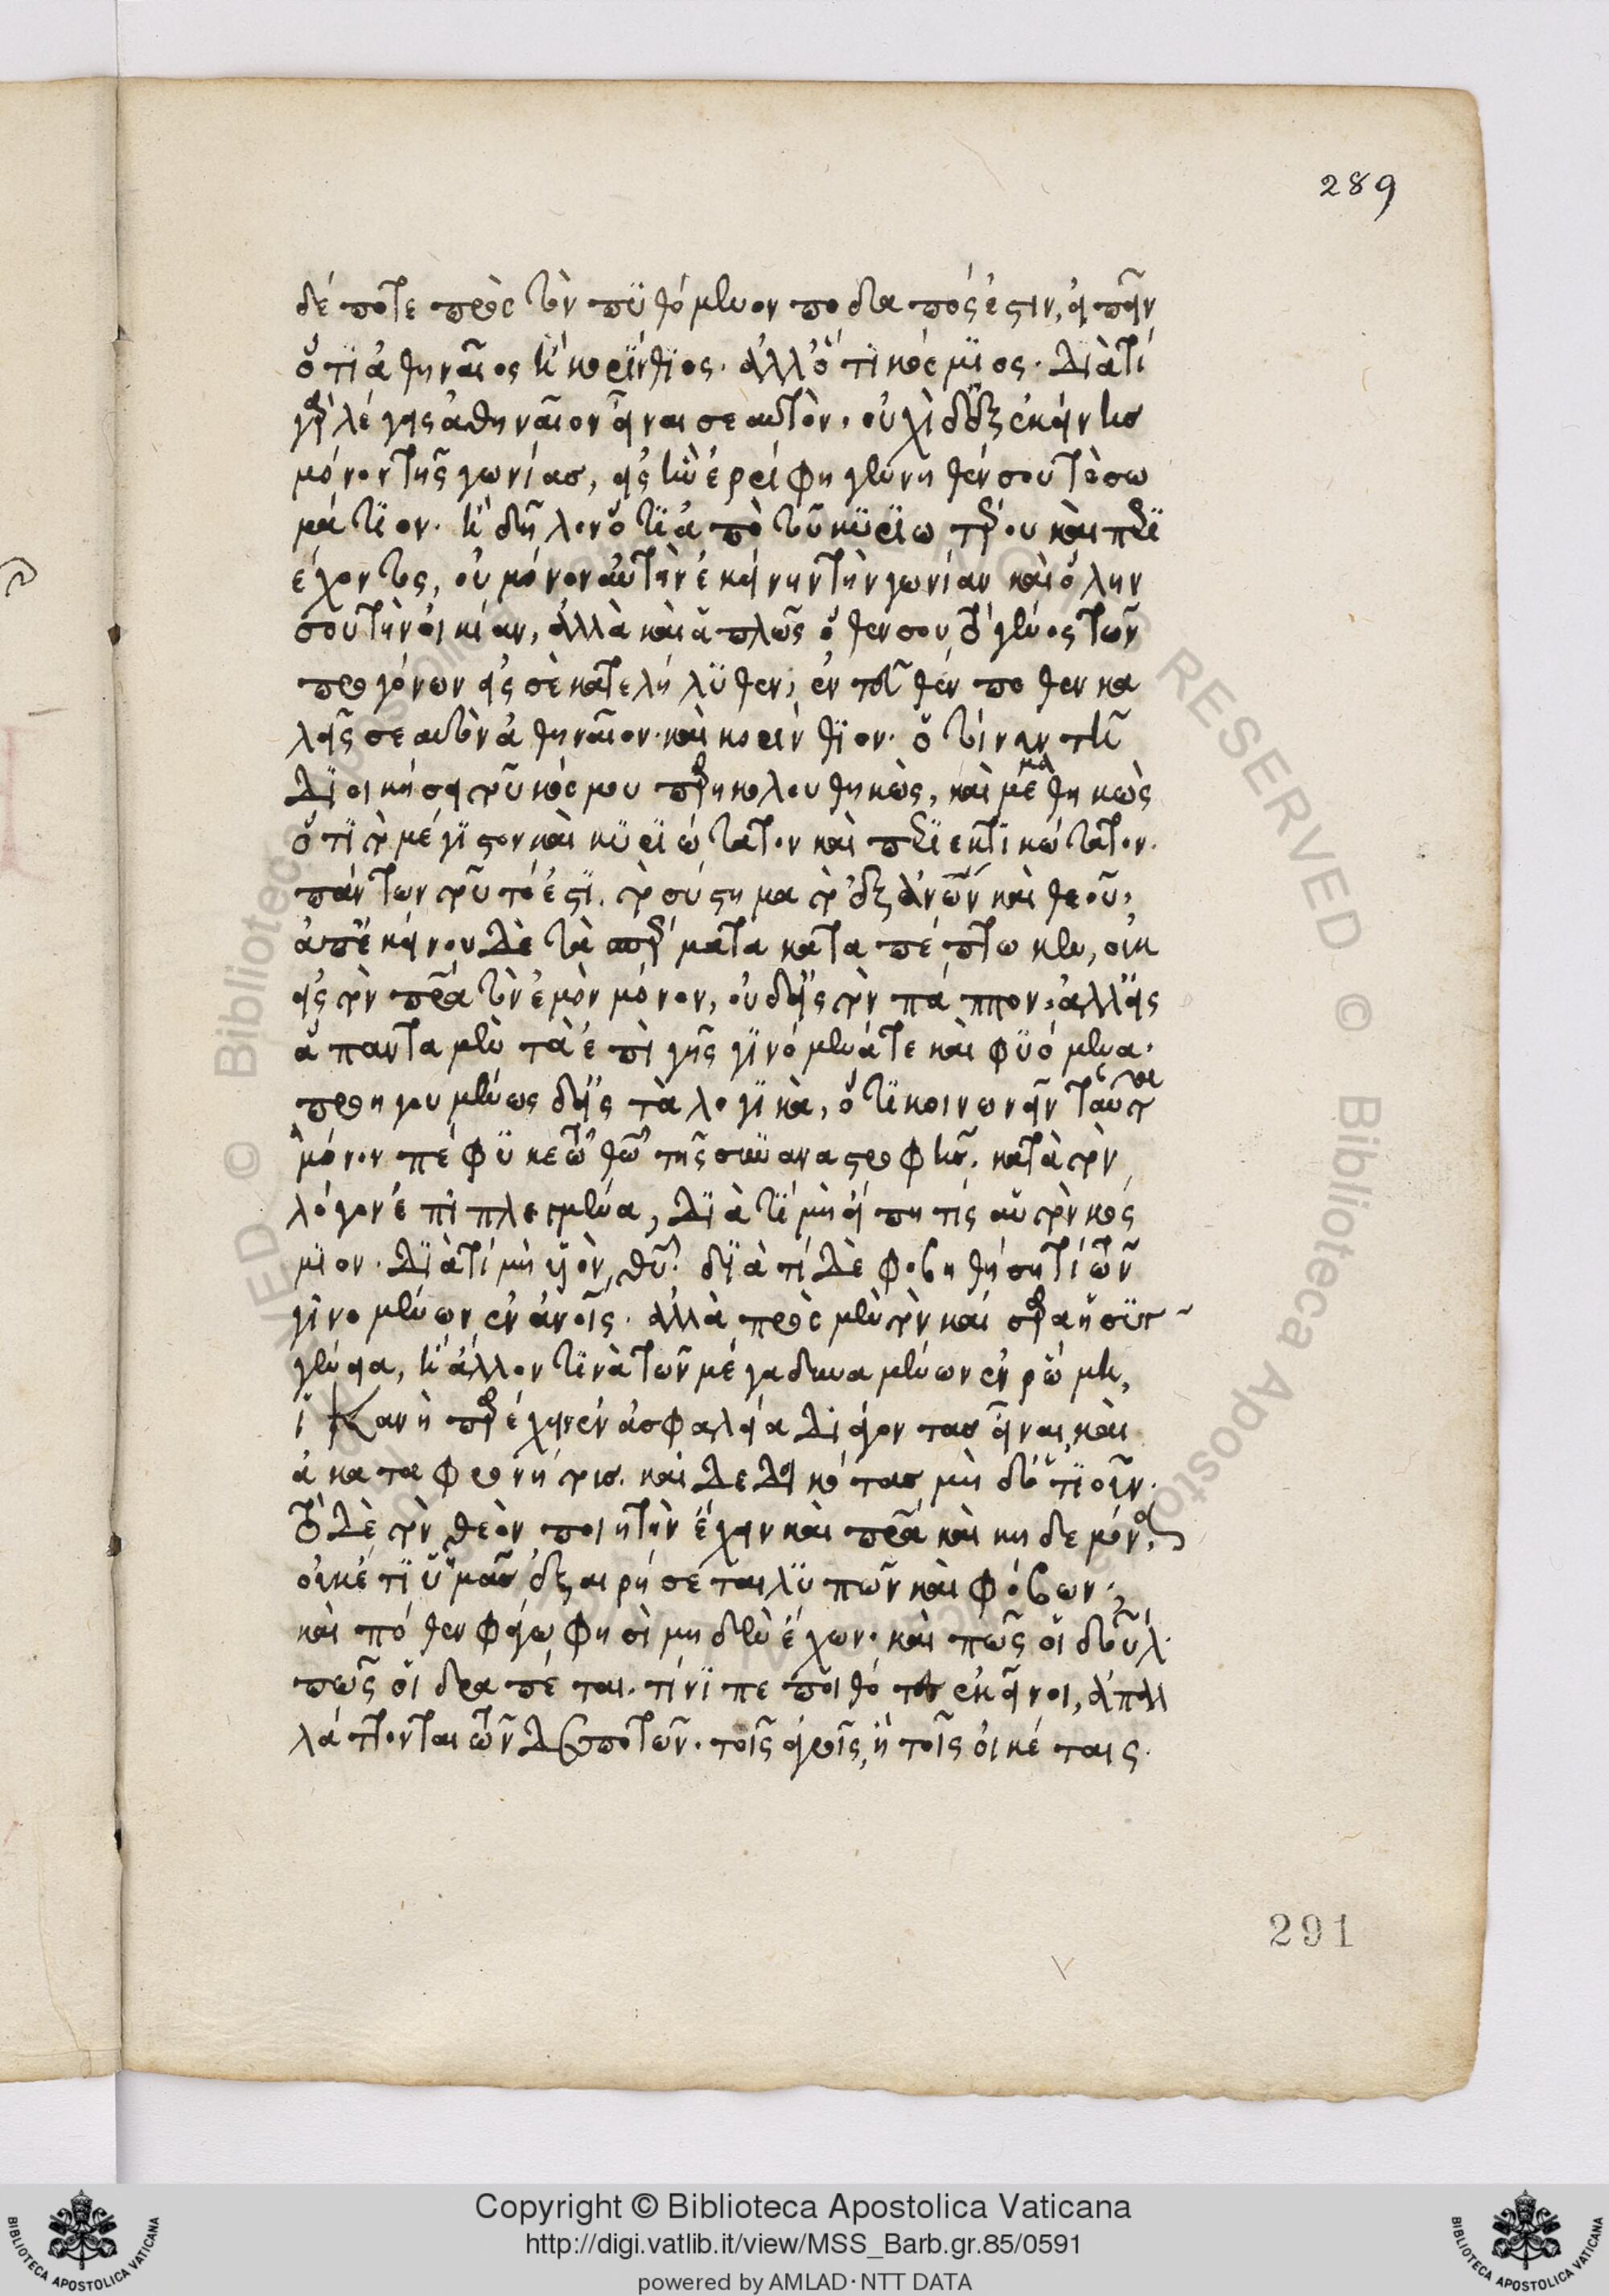 289
δέποτε πρὸς τὸν πϋθόμενον ποδαπός ἐστιν, εἰπεῖν
ὅτι ἀθηναῖος ἢ κορίνθιος. ἀλλ' ὅτι κόσμιος. διατί
γὰρ λέγεις ἀθηναῖον εἶναι σεαυτὸν. οὐχὶ δ' ἐξ ἐκείνης
μόνον τῆς γωνίας, εἰς ἣν ἐρείφη γεννηθέν σου τὸ σω
μάτιον. ἢ δῆλον ὅτι ἀπὸ τοῦ κυριωτέρου καὶ περι
έχοντος, οὐ μόνον αὐτὴν ἐκείνην τὴν γωνίαν καὶ ὅλην
σου τὴν οἰκίαν, ἀλλὰ καὶ ἁπλῶς ὅθεν σου τὸ γένος τῶν
προγόνων εἰς σὲ κατελήλυθεν, ἐντεῦθέν ποθεν κα
λεῖς σεαυτὸν ἀθηναῖον. καὶ κορίνθιον. ὅτοίνυν τῆ
διοικήσει τοῦ κόσμου παρηκολουθηκὼς, καὶ μεμαθηκὼς
ὅτι τὸ μέγιστον καὶ κυριώτατον καὶ περιεκτικώτατον.
πάντων τοῦτό ἐστι. τὸ σύστημα τὸ ἐξ ἀνων καὶ θεοῦ,
ἀπ' ἐκείνου δὲ τὰ σπέρματα καταπέπτωκεν, οὐκ
εἰς τὸν πρα τὸν ἐμὸν μόνον, οὐδ' εἰς τὸν πάππον, ἀλλ' εἰς
ἅπαντα μὲν τὰ ἐπὶ γῆς γινόμενά τε καὶ φυόμενα.
προηγουμένως δ' εἰς τὰ λογικὰ, ὅτι κοινωνεῖν ταῦτα
μόνον πέφυκε τῶ θῶ τῆς συναναστροφῆς. κατὰ τὸν
λόγον ἐπιπλεγμένα, διὰ τί μὴ εἴπη τις αὑτὸν κόσ
μιον. διατί μὴ υἱὸν θυ. διὰ τί δὲ φοβηθήσηται τῶν
γινομένων ἐν ἀνοις. ἀλλὰ πρὸς μὲν τὸν καίσαρα ἡ συγ
γένεια, ἢ ἄλλον τινὰ τῶν μέγα δυναμένων ἐν ρώμη,
ἱκανὴ παρέχειν ἐν ἀσφαλεία διάγοντας εἶναι, καὶ
ἀκαταφρονήτους. καὶ δεδοικότας μὴ δ' ὁτιοῦν.
τὸ δὲ τὸν θεὸν ποιητὴν ἔχειν καὶ πρα καὶ κηδεμόνα,
οὐκέτι ὑμᾶς ἐξαιρήσεται λυπῶν καὶ φόβων.
καὶ πόθεν φάγω φησὶ μηδὲν ἔχων. καὶ πῶς οἱ δοῦλ.
πῶς οἱ δραπέται. τίνι πεποιθότες ἐκεῖνοι, ἀπαλ
λάττονται τῶν δεσποτῶν. τοῖς ἀγροῖς, ἢ τοῖς οἰκέταις.
291
Copyright © Biblioteca Apostolica Vaticana
http://digi.vatlib.it/view/MSS_Barb.gr.85/0591
powered by AMLAD · NTT DATA